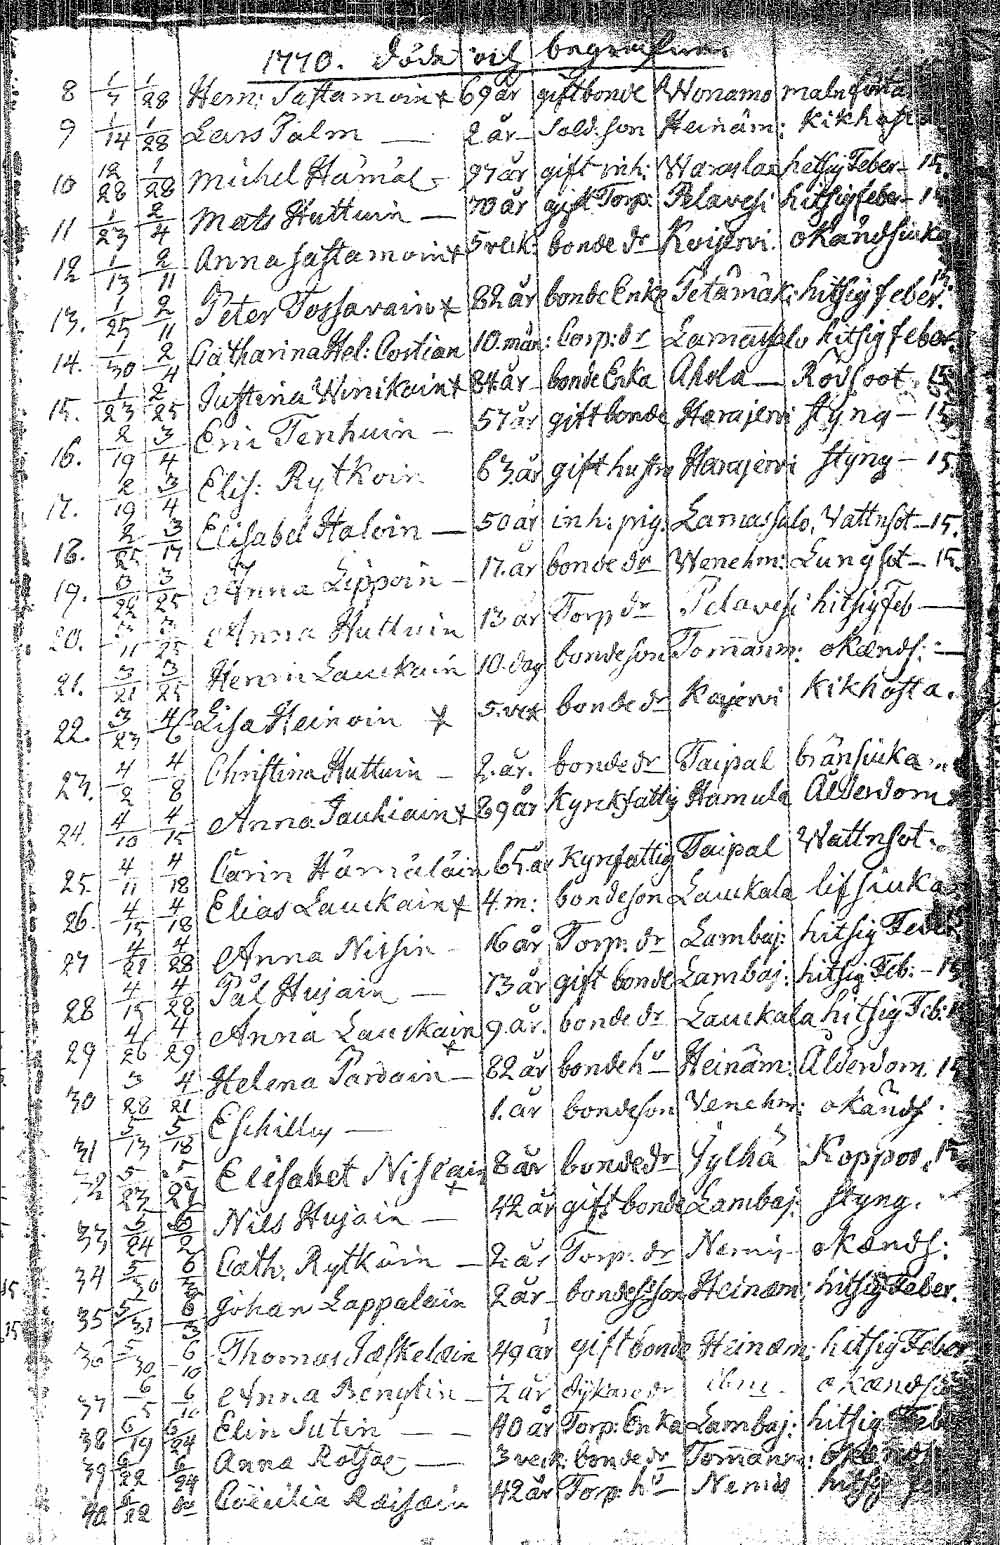 1770. döde och begrafne.
8 1/7 1/28 Hem: Sastamoin 69 år gift bonde Wonamo maln
9 1/14 1/28 Lars Palm — 2 år Sold: son Heinäm: Kikhosta
10 12/28 1/28 Michel Hämäl 97 år gift inh: hetsig Feber 15.
11 1/23 2/4 Mats Huttuin — 70 år gift Torp: Pelavesi hitsig feber
12 1/13 2/11 Anna Sastamoin 5 veck: bonde dr Kvijervi okänd siuka
13. 1/25 2/11 Peter Tossavain 82 år bonde Enke Petämäk: hitsig feber.
14. 1/30 2/4 Catharina Hel: Costian 10. mån: Corp: dr Lamassalo hitsig feber.
15. 1/23 2/25 Justina Winikain 84 år bonde Enka Ahola — Rödsoot 15
16. 2/19 3/4 Eric Tenhuin — 57 år gift bonde Harajervi styng — 15
17. 2/19 3/4 Elis: Rytkoin 63 år gift hustru Harajervi styng — 15.
18. 2/25 3/17 Elisabet Haloin — 50 år inh: pig. Lamassalo. Vattnsot — 15.
19. 3/22 3/25 Anna Lippoin — 17. år bonde dr Wenehm: Lungsot — 15.
20. 3/11 3/25 Anna Huttuin 13 år Torp dr Pelavesi hitsig Feb —
21. 3/21 3/25 Henric Lauckain 10. dag bondeson Tommänm: okænds: —
22. 3/23 4/6 Lisa Heinoin 5. vek bonde dr Kajervi Kikhosta.
23. 4/2 4/8 Christina Huttuin — 2. år. bonde dr Taipal bränsiuka
24. 4/10 4/15 Anna Jauhiain 89 år Kyrckfattig Hamula Ålderdom
25. 4/11 4/18 Carin Hämäläin 65. år Kyrcfattig Taipal Wattnsot.
26. 4/15 4/18 Elias Lauckain 4. m: bondeson Lauckala lifsiuka
27 4/21 4/28 Anna Nissin 16 år Torp: dr Lambaj: hitsig Feber
28 4/15 4/28 Pål Hujain — 73 år gift bonde Lambaj: hitsig Feb: — 15
29 4/26 4/29 Anna Lauckain 9. år. bonde dr Lauckala hitsig Feb:
30 3/28 4/21 Helena Pardain — 82 år bonde hu Heinäm: Ålderdom. 15
31 5/13 5/18 Eschillus — 1. år bondeson Venehm: okänds:
32 5/23 5/27 Elisabet Niskain 8 år bonde dr Jylhä Koppor. 15
33 5/24 6/2 Nils Hujain — 42 år gift bonde Lambaj: styng.
34 5/30 6/3 Cath: Rytkoin — 2. år Torp: dr Nemis okænds:
35 5/31 6/3 Johan Lappalain 2 år Heinäm: hitsig Feber.
36 5/30 6/10 Thomas Jæskelæin 49 år gift bonde Heinæm: hitsig Feber
37 6/5 6/10 Anna Bengtin — 1/2 år dr ibm. okænds
38 6/19 6/24 Elin Sutin — — 40 år Torp: Enka Lambaj: hitsig Feb
39 6/22 6/24 Anna Rotjoe — 3 veck: bonde dr Tommänm: okænds
40 6/22 Cæcilia Ræisæin 42 år Torp: hu Nemis hitsig feb